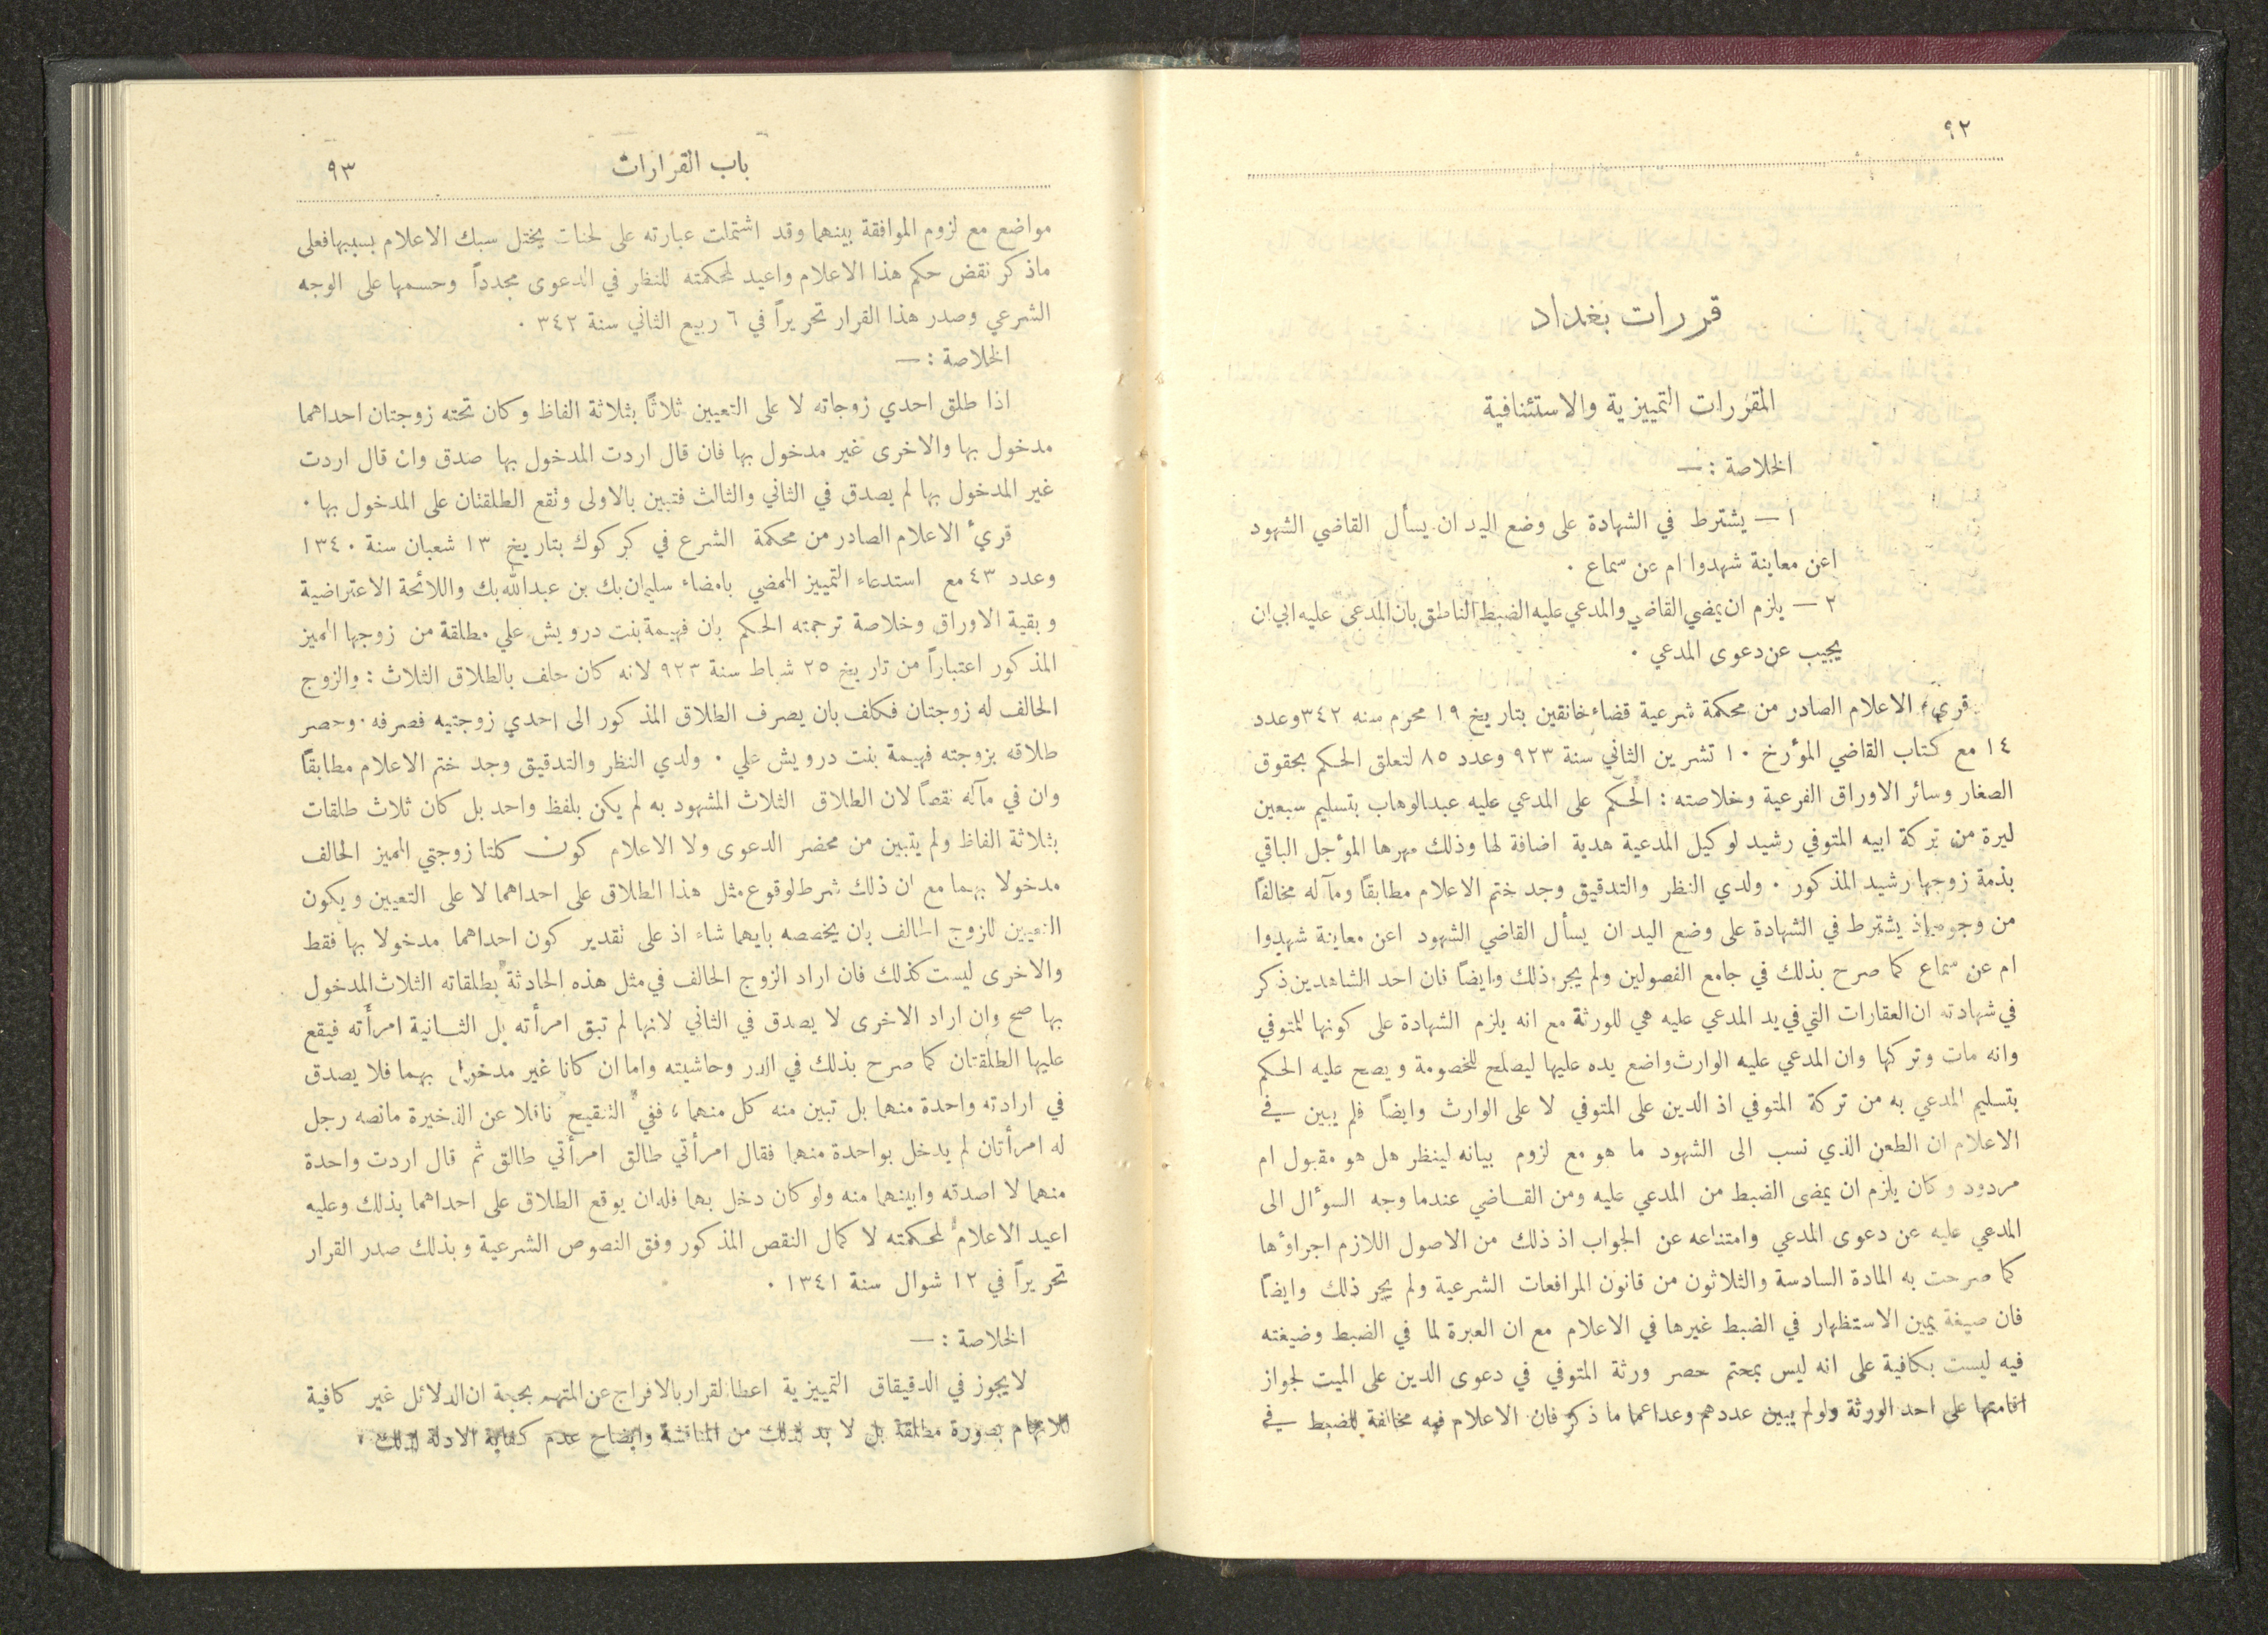 ٩٢
قررات بغداد
المقررات التمييزية والاستئنافية
الخلاصة : —
١ — يشترط في الشهادة على وضع اليد ان يسأل القاضي الشهود
اعن معاينة شهدوا ام عن سماع ٠
٢ — يلزم ان يمضي القاضي والمدعي عليه الضبط الناطق بان المدعى عليه ابي ان
يجيب عن دعوى المدعي ٠
قريء الاعلام الصادر من محكمة شرعية قضاء خانقين بتاريخ ١٩ محرم سنه ٣٤٢ وعدد
١٤ مع كتاب القاضي المؤرخ ١٠ تشرين الثاني سنة ٩٢٣ وعدد ٨٥ لتعلق الحكم بحقوق
الصغار وسائر الاوراق الفرعية وخلاصته : الحكم على المدعي عليه عبدالوهاب بتسليم سبعين
ليرة من تركة ابيه المتوفي رشيد لوكيل المدعية هدية اضافة لها وذلك مهرها المؤجل الباقي
بذمة زوجها رشيد المذكور ٠ ولدي النظر والتدقيق وجد ختم الاعلام مطابقاً ومآله مخالفاً
من وجوه اذ يشترط في الشهادة على وضع اليد ان يسأل القاضي الشهود اعن معاينة شهدوا
ام عن سماع كما صرح بذلك في جامع الفصولين ولم يجر ذلك وايضاً فان احد الشاهدين ذكر
في شهادته ان العقارات التي في يد المدعي عليه هي للورثة مع انه يلزم الشهادة على كونها للمتوفي
وانه مات وتركها وان المدعي عليه الوارث واضع يده عليها ليصلح للخصومة ويصح عليه الحكم
بتسليم المدعي به من تركة المتوفي اذ الدين على المتوفي لا على الوارث وايضاً فلم يبين في
الاعلام ان الطعن الذي نسب الى الشهود ما هو مع لزوم بيانه لينظر هل هو مقبول ام
مردود وكان يلزم ان يمضى الضبط من المدعي عليه ومن القاضي عندما وجه السؤال الى
المدعي عليه عن دعوى المدعي وامتناعه عن الجواب اذ ذلك من الاصول اللازم اجراؤها
كما صرحت به المادة السادسة والثلاثون من قانون المرافعات الشرعية ولم يجر ذلك وايضاً
فان صيغة يمين الاستظهار في الضبط غيرها في الاعلام مع ان العبرة لما في الضبط وضيغته
فيه ليست بكافية على انه ليس بمحتم حصر ورثة المتوفي في دعوى الدين على الميت لجواز
اقامتها على احد الورثة ولو لم يبين عددهم وعداعما ما ذكر فان الاعلام فيه مخالفة للضبط في
باب القرارات
٩٣
مواضع مع لزوم الموافقة بينهما وقد اشتملت عبارته على لحنات يختل سبك الاعلام بسببها فعلى
ماذكر نقض حكم هذا الاعلام واعيد لمحكمته للنظر في الدعوى مجدداً وحسمها على الوجه
الشرعي وصدر هذا القرار تحريراً في ٦ ربيع الثاني سنة ٣٤٢ ٠
الخلاصة : —
اذا طلق احدي زوجاته لا على التعيين ثلاثاً بثلاثة الفاظ وكان تحته زوجتان احداهما
مدخول بها والاخرى غير مدخول بها فان قال اردت المدخول بها صدق وان قال اردت
غير المدخول بها لم يصدق في الثاني والثالث فتبين بالاولى وتقع الطلقتان على المدخول بها ٠
قريء الاعلام الصادر من محكمة الشرع في كركوك بتاريخ ١٣ شعبان سنة ١٣٤٠
وعدد ٤٣ مع استدعاء التمييز الممضي بامضاء سليمان بك بن عبدالله بك واللائحة الاعتراضية
وبقية الاوراق وخلاصة ترجمته الحكم بان فهيمة بنت درويش علي مطلقة من زوجها المميز
المذكور اعتباراً من تاريخ ٢٥ شباط سنة ٩٢٣ لانه كان حلف بالطلاق الثلاث : والزوج
الحالف له زوجتان فكلف بان يصرف الطلاق المذكور الى احدي زوجتيه فصرفه ٠ وحصر
طلاقه بزوجته فهيمة بنت درويش علي ٠ ولدي النظر والتدقيق وجد ختم الاعلام مطابقاً
وان في مآله نقصاً لان الطلاق الثلاث المشهود به لم يكن بلفظ واحد بل كان ثلاث طلقات
بثلاثة الفاظ ولم يتبين من محضر الدعوى ولا الاعلام كون كلتا زوجتي المميز الحالف
مدخولا بهما مع ان ذلك شرط لوقوع مثل هذا الطلاق على احداهما لا على التعيين ويكون
التعيين للزوج الحالف بان يخصصه بايهما شاء اذ على تقدير كون احداهما مدخولا بها فقط
والاخرى ليست كذلك فان اراد الزوج الحالف في مثل هذه الحادثة بطلقاته الثلاث المدخول
بها صح وان اراد الاخرى لا يصدق في الثاني لانها لم تبق امرأته بل الثانية امرأته فيقع
عليها الطلقتان كما صرح بذلك في الدر وحاشيته واما ان كانا غير مدخول بهما فلا يصدق
في ارادته واحدة منهما بل تبين منه كل منهما ، ففي التنقيح ناقلا عن الذخيرة مانصه رجل
له امرأتان لم يدخل بواحدة منهما فقال امرأتي طالق امرأتي طالق ثم قال اردت واحدة
منهما لا اصدقه وابينهما منه ولو كان دخل بهما فله ان يوقع الطلاق على احداهما بذلك وعليه
اعيد الاعلام لمحكمته لا كمال النقص المذكور وفق النصوص الشرعية وبذلك صدر القرار
تحريراً في ١٢ شوال سنة ١٣٤١ ٠
الخلاصة : —
لايجوز في الدقيقاق التمييزية اعطا القرار بالافراج عن المتهم بحجة ان الدلائل غير كافية
للاتهام بصورة مطلقة بل لا بد لذلك من المناقشة وايضاح عدم كفاية الادلة لذلك ٠